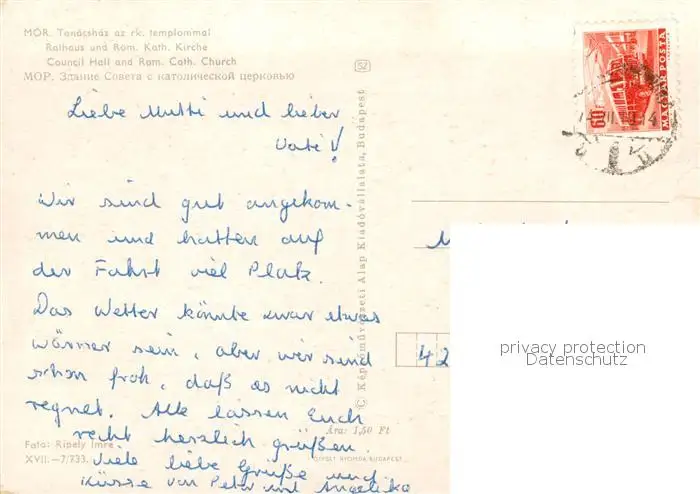 MÓR. Tanácsház az rk. templommal
Rathaus und Röm. Kath. Kirche
Council Hall and Rom. Cath. Church
МОР. Здание Совета с католической церковью
Liebe Mutti und lieber
Vati!
Wir sind gut angekom-
men und hatten auf
der Fahrt viel Platz.
Das Wetter könnte zwar etwas
wärmer sein, aber wir sind
schon froh, daß es nicht
regnet. Alle lassen Euch
recht herzlich grüßen.
Viele liebe Grüße und
Küsse von Peter und Angelika
Foto: Ripely Imre
XVII.—7/733.
Ára: 1,50 Ft
OFFSET NYOMDA BUDAPEST
© Képzőművészeti Alap Kiadóvállalata, Budapest
SZ
60f
MAGYAR POSTA
42
privacy protection
Datenschutz